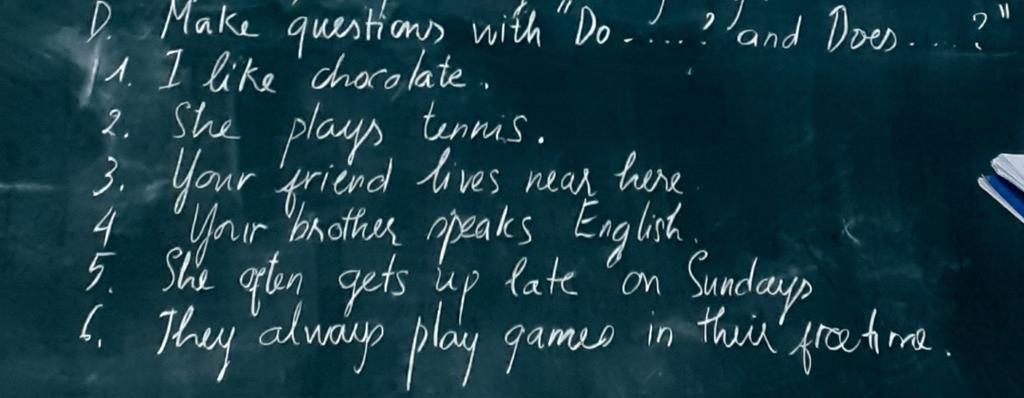 D. Make questions with "Do.....?" and Does....?"
1. I like chocolate.
2. She plays tennis.
3. Your friend lives near here.
4 Your brother speaks English.
5. She often gets up late on Sundays
6. They always play games in their freetime.